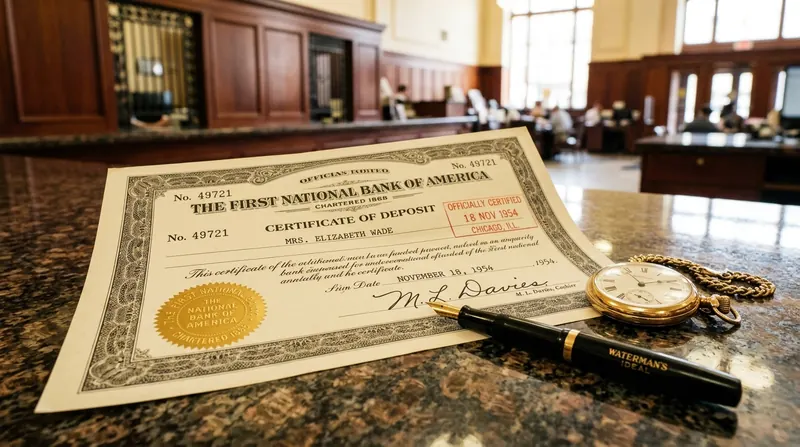 OFFICIAS
No. 49721
No. 49721
THE FIRST NATIONAL BANK OF AMERICA
CHARTERED 1868
CERTIFICATE OF DEPOSIT
OFFICIALLY CERTIFIED
18 NOV 1954
CHICAGO, ILL.
No. 49721
MRS. ELIZABETH WADE
This certificate of the additional, men to no hundred
bank
annually and he certificate.
Date NOVEMBER 18, 1954 1954.
M.L. Davies,
M. L. Cashier
NATIONAL
THE
NATIONAL
BANK OF
AMERICA
CHARTERED
WATERMAN'S
IDEAL